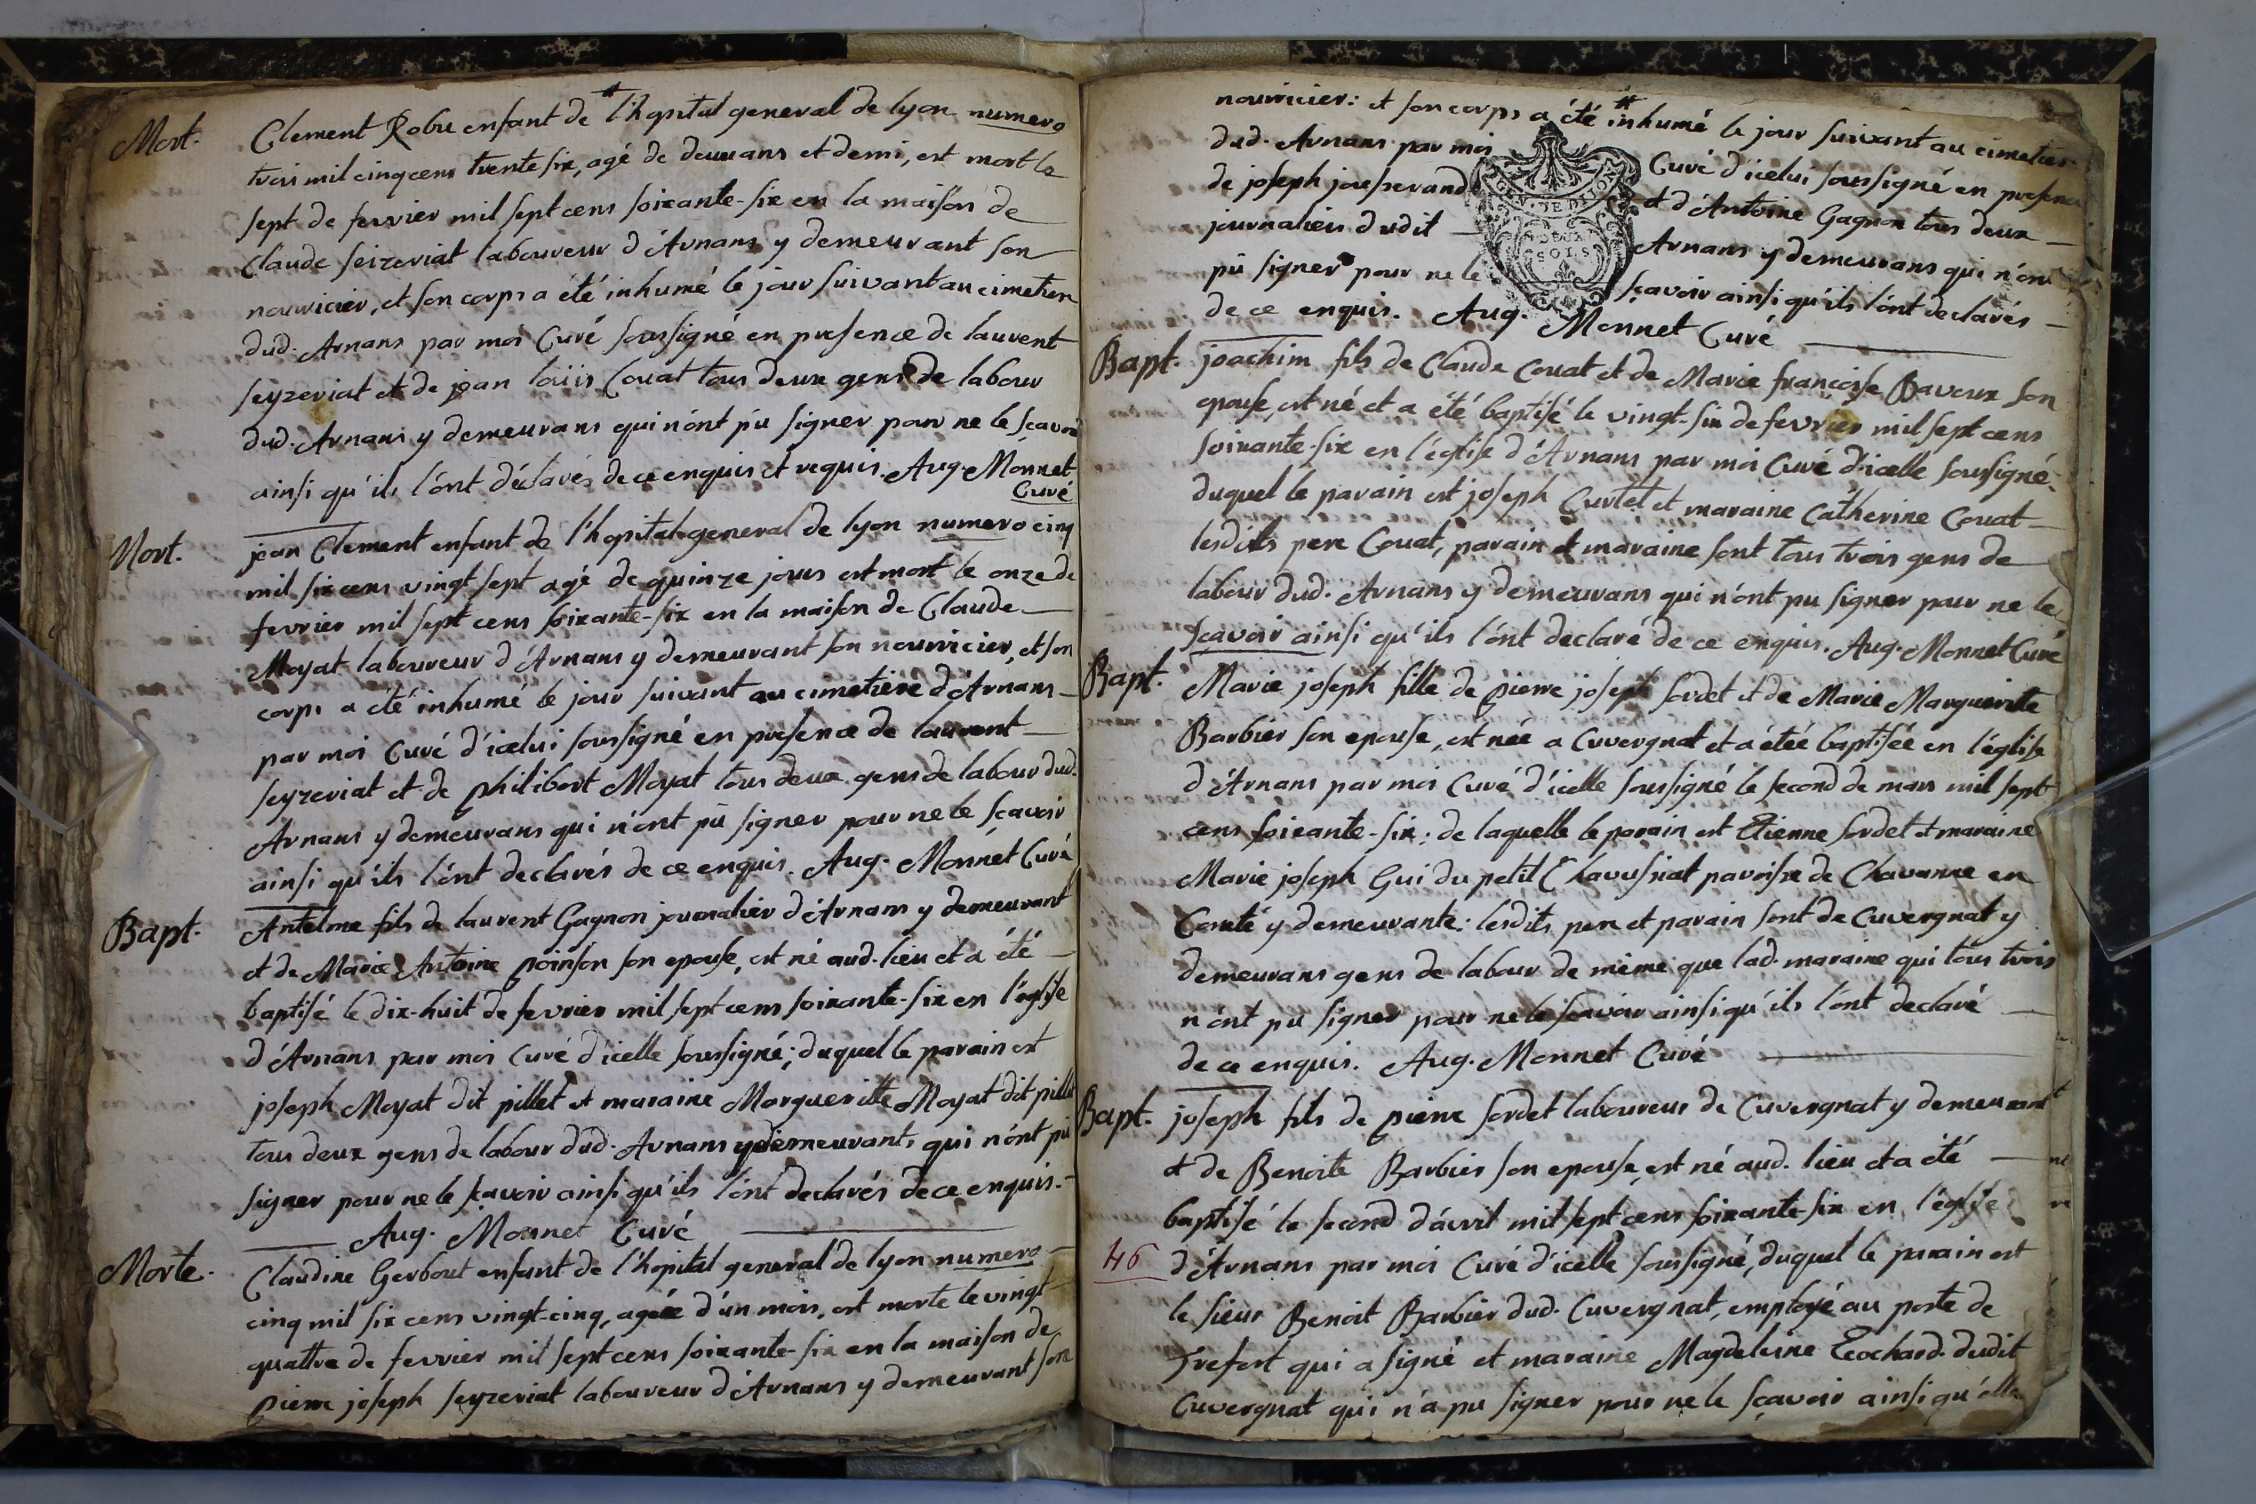 Mort.
Clement Robu enfant de l'hopital general de lyon numero
trois mil cinq cens trente six, agé de deux ans et demi, est mort le
sept de fevrier mil sept cens soixante-six en la maison de
Claude seizeriat laboureur d'Arnans y demeurant son
nourricier, et son corps a été inhumé le jour suivant au cimetiere
dud. Arnans par moi Curé soussigné en presence de laurent
seyzeriat et de jean loüis Couat tous deux gens de labour
dud. Arnans y demeurans qui n'ont pû signer pour ne le sçavoir
ainsi qu'ils l'ont déclarés de ce enquis et requis. Aug. Monnet
Curé
Mort.
jean Clement enfant de l'hopital general de lyon numero cinq
mil six cens vingt sept agé de quinze jours est mort le onze de
fevrier mil sept cens soixante-six en la maison de Claude
Moyat laboureur d'Arnans y demeurant son nourricier, et son
corps a été inhumé le jour suivant au cimetiere d'Arnans
par moi Curé d'icelui soussigné en presence de laurent
seyzeriat et de philibert Moyat tous deux gens de labour dud.
Arnans y demeurans qui n'ont pû signer pour ne le sçavoir
ainsi qu'ils l'ont declarés de ce enquis. Aug. Monnet Curé
Bapt.
Antelme fils de laurent Gagnon journalier d'Arnans y demeurant
et de Marie Antoine poinson son epouse, est né aud. lieu et a été
baptisé le dix-huit de fevrier mil sept cens soixante-six en l'église
d'Arnans par moi Curé d'icelle soussigné; duquel le parain est
joseph Moyat dit pillet et maraine Margueritte Moyat dit pillet
tous deux gens de labour dud. Arnans y demeurants qui n'ont pû
signer pour ne le sçavoir ainsi qu'ils l'ont declarés de ce enquis.
Aug. Monnet Curé
Morte.
Claudine Gerbout enfant de l'hopital general de lyon numero
cinq mil six cens vingt-cinq, agée d'un mois, est morte le vingt
quattre de fevrier mil sept cens soixante-six en la maison de
pierre joseph seyzeriat laboureur d'Arnans y demeurant son
nourricier: et son corps a été inhumé le jour suivant au cimetiere
dud. Arnans par moi Curé d'icelui soussigné en presence
de joseph jousserand et d'Antoine Gagnon tous deux
journaliers dudit Arnans y demeurans qui n'ont
pû signer pour ne le sçavoir ainsi qu'ils l'ont declarés
de ce enquis. Aug. Monnet Curé
GEN. DE DIJON
DEUX
SOLS
Bapt.
joachim fils de Claude Couat et de Marie françoise Baveux son
epouse, est né et a été baptisé le vingt-six de fevrier mil sept cens
soixante-six en l'église d'Arnans par moi Curé d'icelle soussigné
duquel le parain est joseph Curtet et maraine Catherine Couat
lesdits pere Couat, parain et maraine sont tous trois gens de
labour dud. Arnans y demeurans qui n'ont pu signer pour ne le
sçavoir ainsi qu'ils l'ont declaré de ce enquis. Aug. Monnet Curé
Bapt.
Marie joseph fille de pierre joseph sordet et de Marie Margueritte
Barbier son epouse, est née a Cuvergnat et a étée baptisée en l'église
d'Arnans par moi Curé d'icelle soussigné le second de mars mil sept
cens soixante-six: de laquelle le parain est Etienne sordet et maraine
Marie joseph Gui du petit Chavussiat paroisse de Chavanne en
Comté y demeurante: lesdits pere et parain sont de Cuvergnat y
demeurans gens de labour de même que lad. maraine qui tous trois
n'ont pu signer pour ne le sçavoir ainsi qu'ils l'ont declaré
de ce enquis. Aug. Monnet Curé
Bapt.
joseph fils de pierre sordet laboureur de Cuvergnat y demeurant
et de Benoite Barbier son epouse, est né aud. lieu et a été
baptisé le second d'avril mil sept cens soixante-six en l'église
46
d'Arnans par moi Curé d'icelle soussigné, duquel le parain est
le sieur Benoit Barbier dud. Cuvergnat, employé au poste de
Trefort qui a signé et maraine Magdeleine dudit
Cuvergnat qui n'a pu signer pour ne le sçavoir ainsi qu'elle